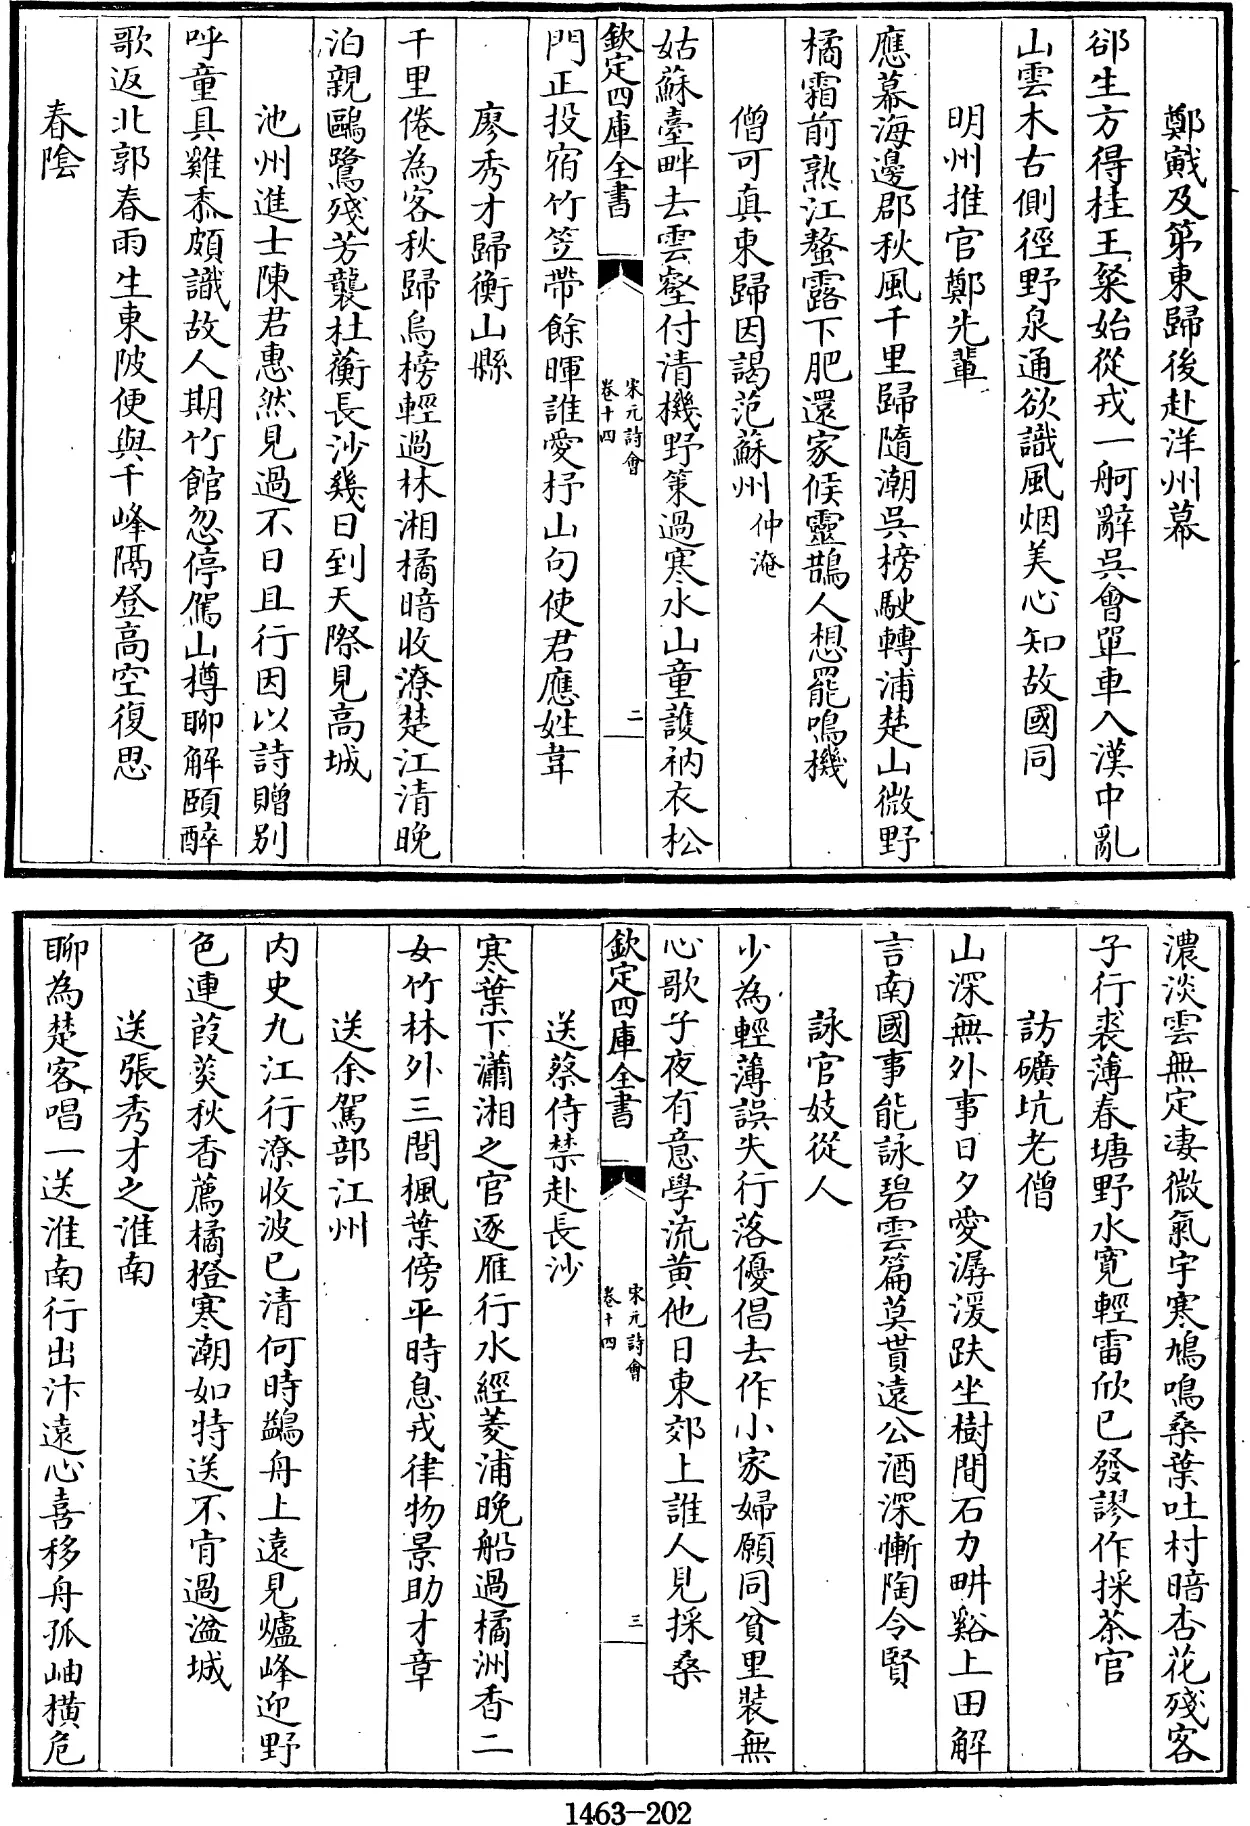 鄭戭及第東歸後赴洋州幕
郤生方得桂王粲始從戎一舸辭吳會單車入漢中亂
山雲木古側徑野泉通欲識風烟美心知故國同
明州推官鄭先輩
應幕海邊郡秋風千里歸隨潮吳榜駛轉浦楚山微野
橘霜前熟江螯露下肥還家候靈鵲人想罷鳴機
僧可真東歸因謁范蘇州仲淹
姑蘇臺畔去雲壑付清機野策過寒水山童護衲衣松
欽定四庫全書
宋元詩會
卷十四
二
門正投宿竹笠帶餘暉誰愛抒山句使君應姓韋
廖秀才歸衡山縣
千里倦為客秋歸烏榜輕過林湘橘暗收潦楚江清晚
泊親鷗鷺殘芳襲杜蘅長沙幾日到天際見高城
池州進士陳君惠然見過不日且行因以詩贈別
呼童具雞黍頗識故人期竹館忽停駕山樽聊解頤醉
歌返北郭春雨生東陂便與千峰隔登高空復思
春陰
濃淡雲無定凄微氣宇寒鳩鳴桑葉吐村暗杏花殘客
子行裘薄春塘野水寛輕雷欣已發謬作採茶官
訪礦坑老僧
山深無外事日夕愛潺湲趺坐樹間石力畊谿上田解
言南國事能詠碧雲篇莫貰遠公酒深慚陶令賢
詠官妓從人
少為輕薄誤失行落優倡去作小家婦願同貧里裝無
心歌子夜有意學流黄他日東郊上誰人見採桑
欽定四庫全書
宋元詩會
卷十四
三
送蔡侍禁赴長沙
寒葉下瀟湘之官逐雁行水經菱浦晚船過橘洲香二
女竹林外三閭楓葉傍平時息戎律物景助才章
送余駕部江州
内史九江行潦收波已清何時鷁舟上遠見爐峰迎野
色連葭菼秋香薦橘橙寒潮如特送不肯過湓城
送張秀才之淮南
聊為楚客唱一送淮南行出汴遠心喜移舟孤岫横危
1463-202